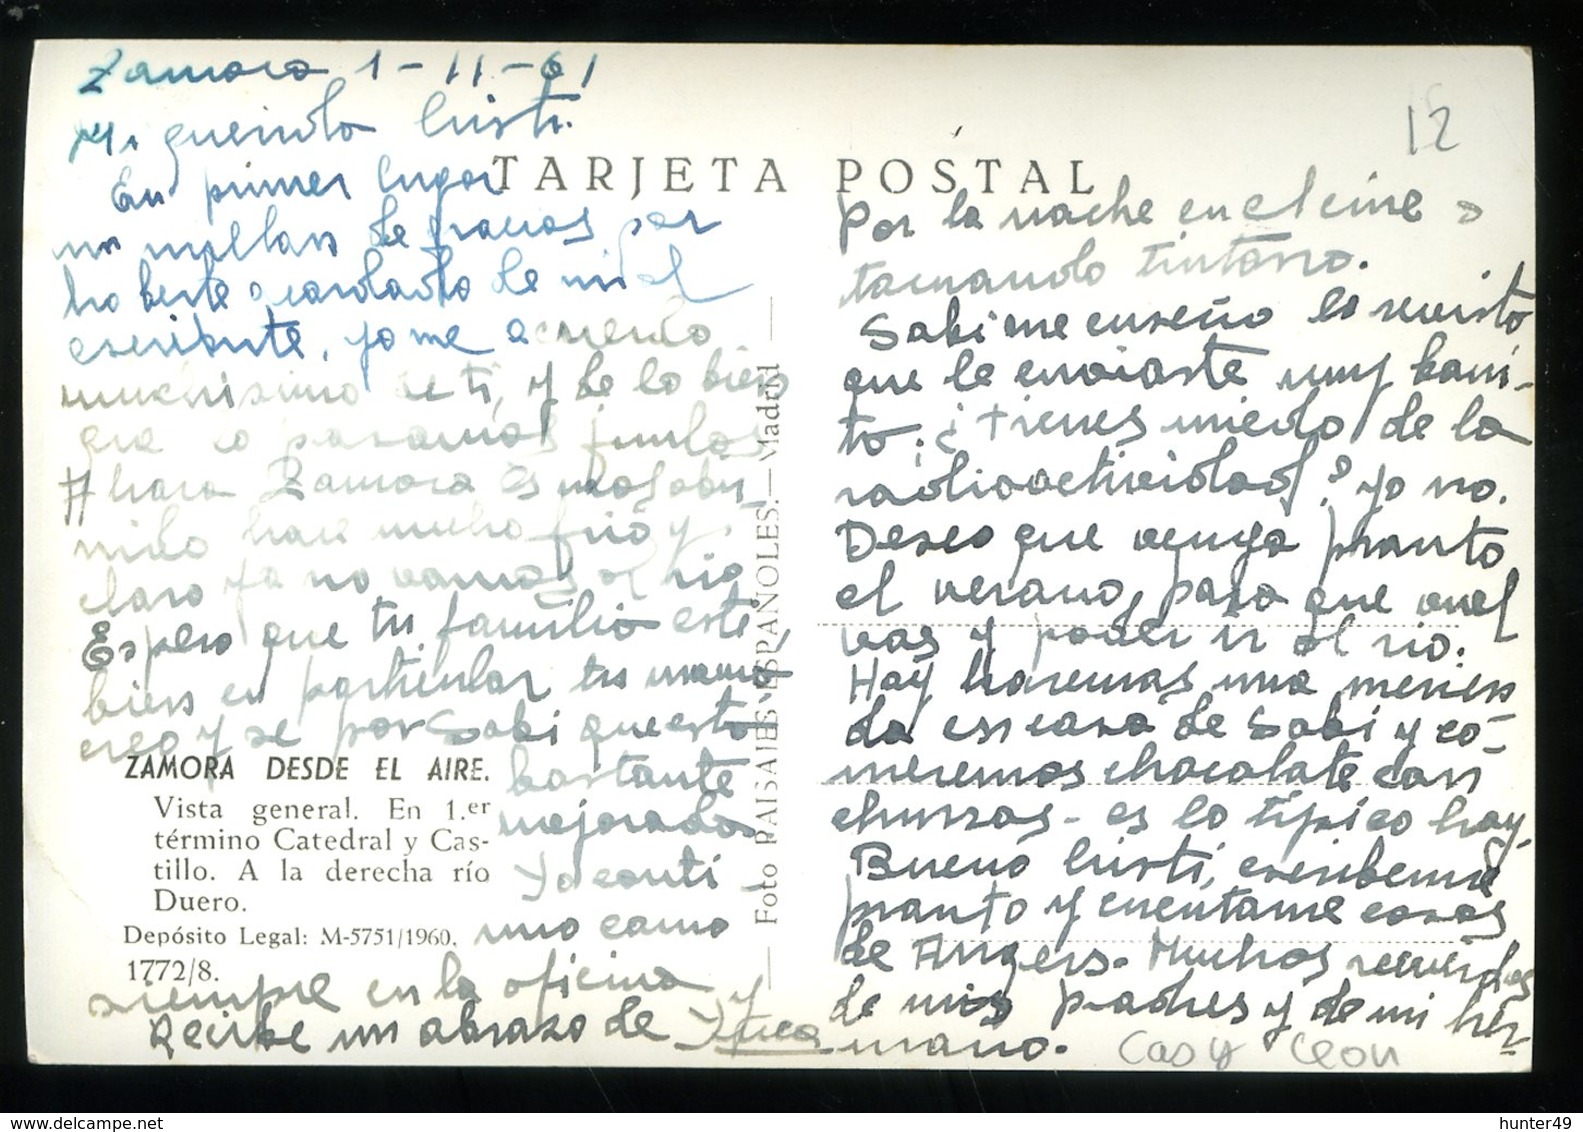 Zamora 1-11-61
Mi querida Cristi.
En primer lugar
un millar de gracias por
haberte acordado de mi al
escribirte, yo me acuerdo
muchisimo de ti, y de lo bien
que lo pasamos juntas
Ahora Zamora es más abu
rrido hace mucho frio y
claro ya no vamos al rio
Espero que tu familia esté
bien en particular tu mamá,
creo y se por Sabi que está
bastante
mejorada
Yo conti
nuo como
siempre en la oficina y
TARJETA POSTAL
Por la noche en el cine a
tomando tintorro.
Sabi me enseño la revista
que le enviaste muy boni-
ta; ¿tienes miedo de la
radioactividad? yo no.
Deseo que venga pronto
el verano, para que vuel
vas y poder ir al rio.
Hoy haremos una merien
da en casa de Sabi y co-
meremos chocolate con
churros - es lo típico hoy.
Bueno Cristi, escribeme
pronto y cuentame cosas
de Angers. Muchos recuerdos
de mis padres y de mi her-
mano.
Recibe un abrazo de
ZAMORA DESDE EL AIRE.
Vista general. En 1.er
término Catedral y Cas-
tillo. A la derecha río
Duero.
Depósito Legal: M-5751/1960.
1772/8.
Foto PAISAJES ESPAÑOLES.—Madrid
12
Cas y Leon
hunter49
www.delcampe.net